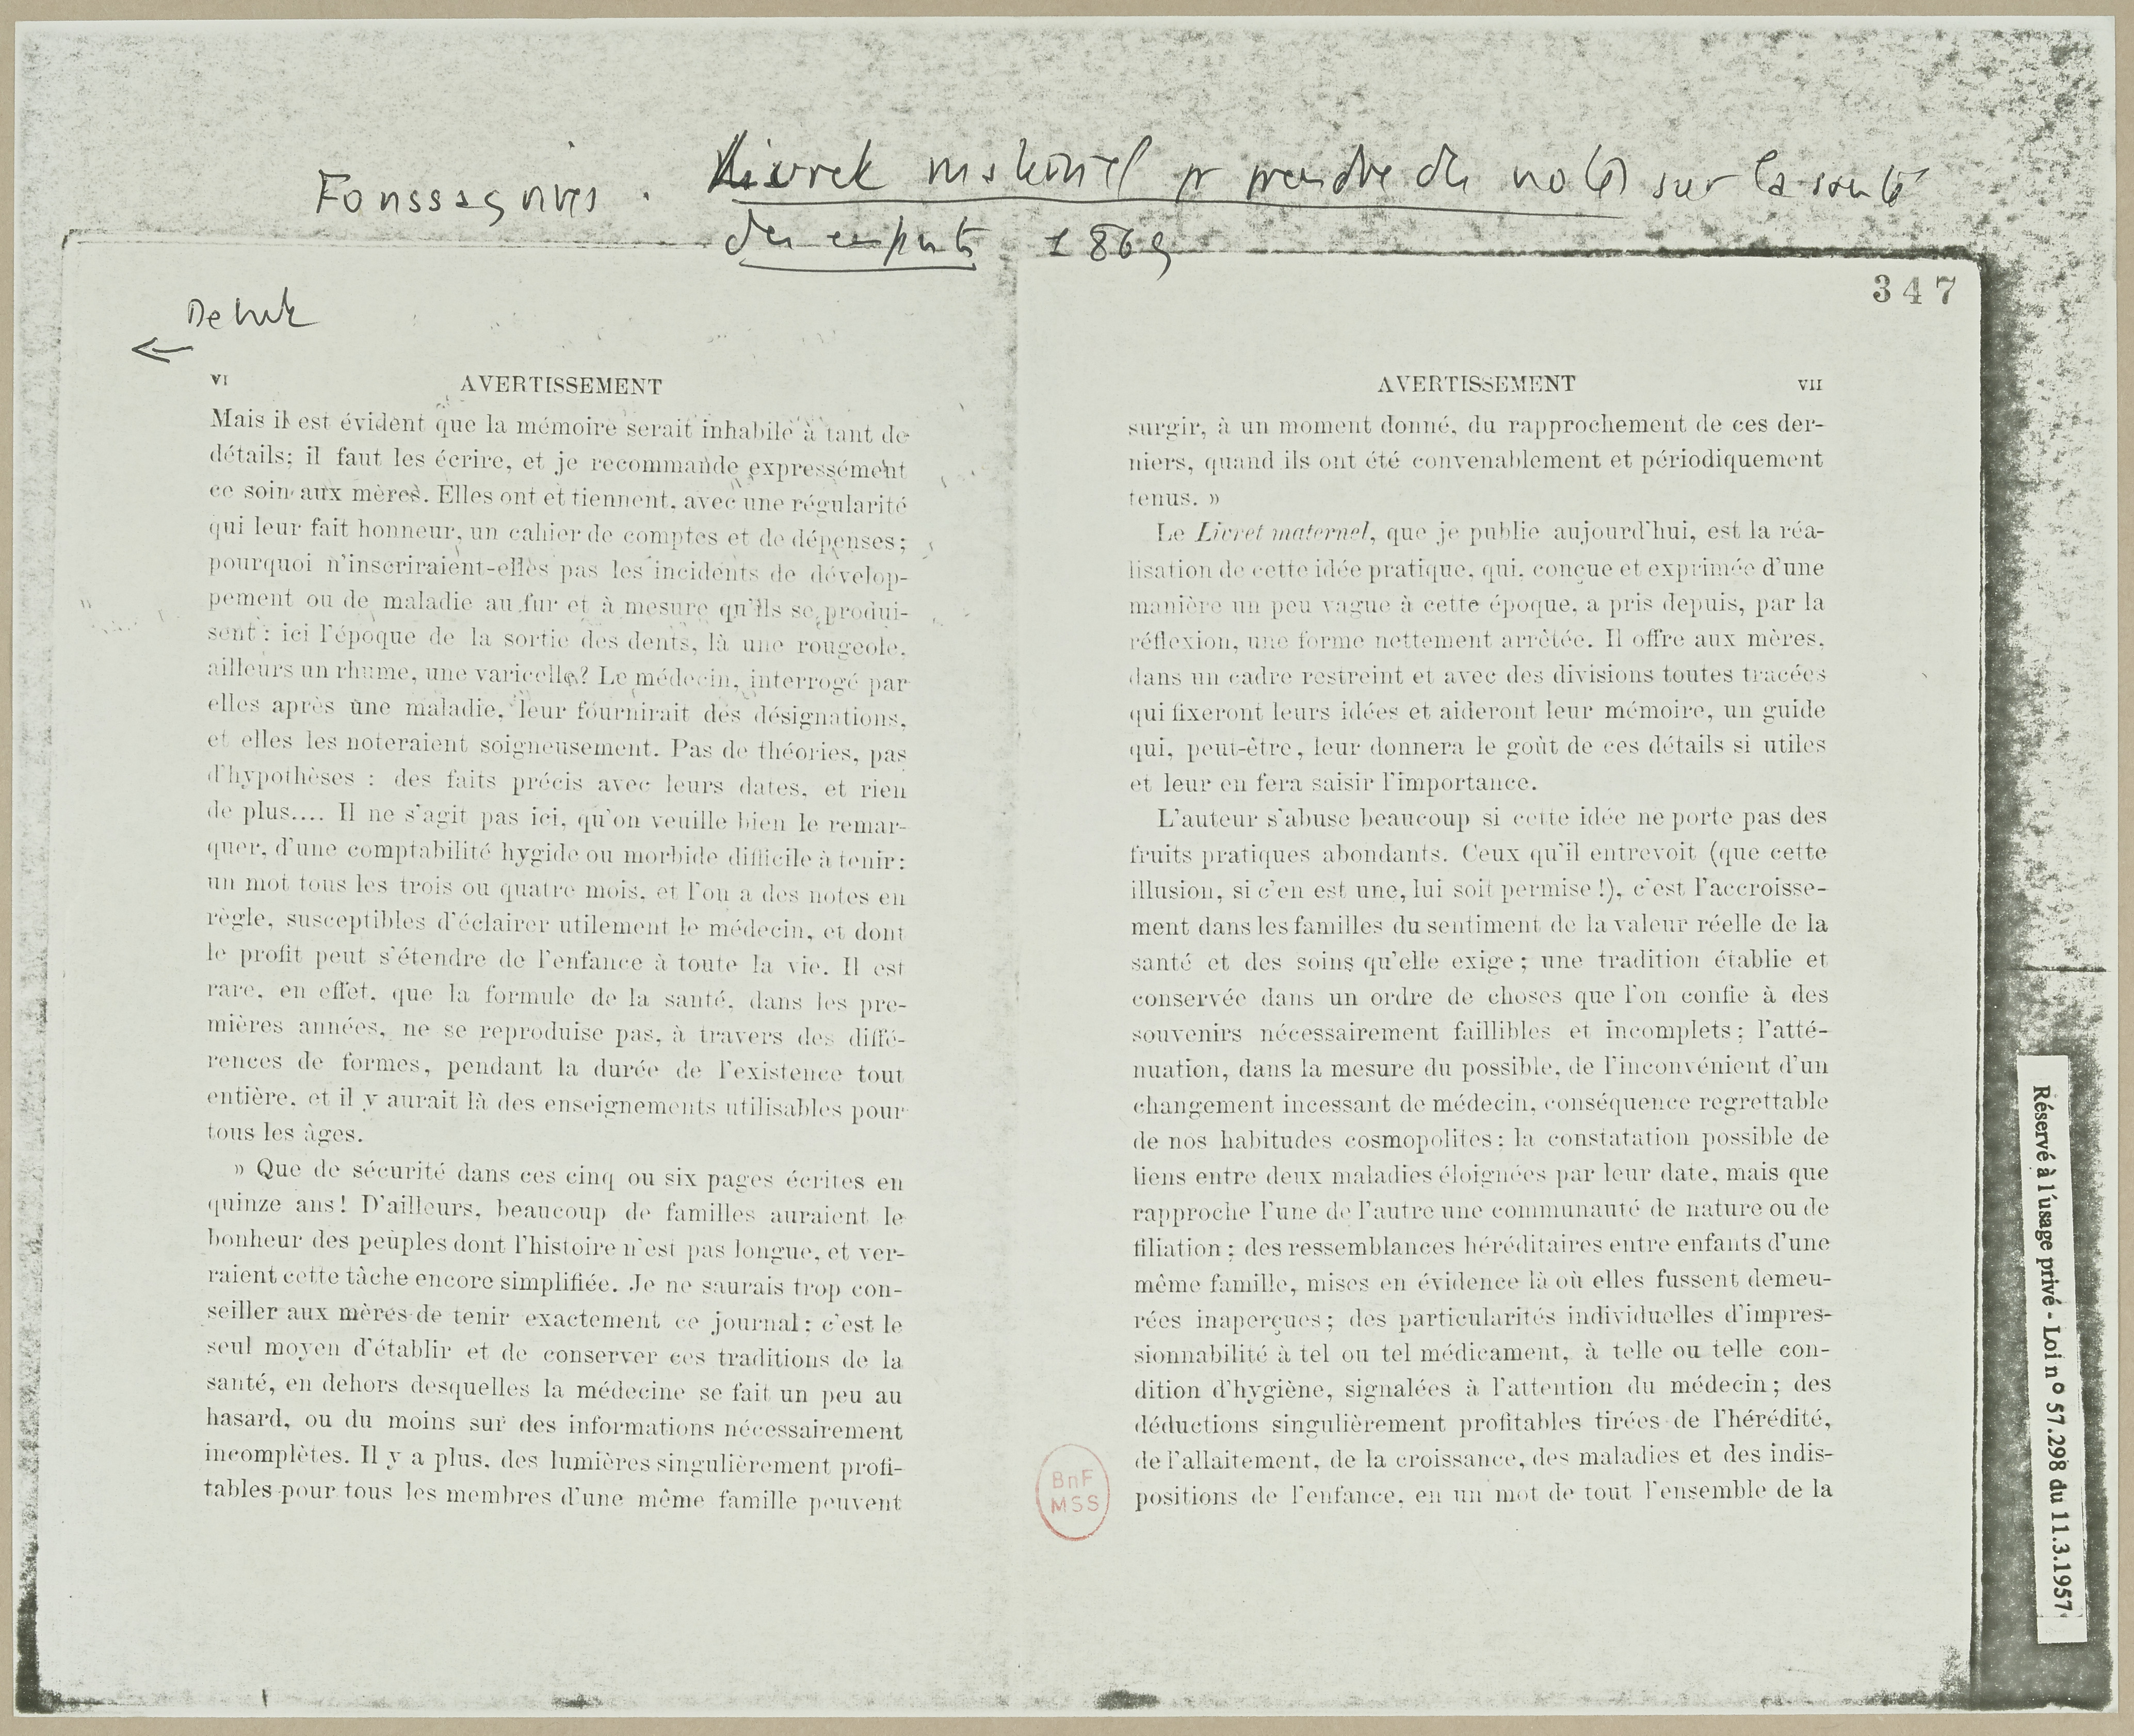 Fonssagrives. Livret maternel pr prendre des notes sur la santé
des enfants 1869
347
Debut
←
VI AVERTISSEMENT
Mais il est évident que la mémoire serait inhabile à tant de
détails; il faut les écrire, et je recommande expressément
ce soin aux mères. Elles ont et tiennent, avec une régularité
qui leur fait honneur, un cahier de comptes et de dépenses;
pourquoi n'inscriraient-elles pas les incidents de dévelop-
pement ou de maladie au fur et à mesure qu'ils se produi-
sent : ici l'époque de la sortie des dents, là une rougeole,
ailleurs un rhume, une varicelle? Le médecin, interrogé par
elles après une maladie, leur fournirait des désignations,
et elles les noteraient soigneusement. Pas de théories, pas
d'hypothèses : des faits précis avec leurs dates, et rien
de plus.... Il ne s'agit pas ici, qu'on veuille bien le remar-
quer, d'une comptabilité hygide ou morbide difficile à tenir:
un mot tous les trois ou quatre mois, et l'on a des notes en
règle, susceptibles d'éclairer utilement le médecin, et dont
le profit peut s'étendre de l'enfance à toute la vie. Il est
rare, en effet, que la formule de la santé, dans les pre-
mières années, ne se reproduise pas, à travers des diffé-
rences de formes, pendant la durée de l'existence tout
entière, et il y aurait là des enseignements utilisables pour
tous les âges.
» Que de sécurité dans ces cinq ou six pages écrites en
quinze ans! D'ailleurs, beaucoup de familles auraient le
bonheur des peuples dont l'histoire n'est pas longue, et ver-
raient cette tâche encore simplifiée. Je ne saurais trop con-
seiller aux mères de tenir exactement ce journal; c'est le
seul moyen d'établir et de conserver ces traditions de la
santé, en dehors desquelles la médecine se fait un peu au
hasard, ou du moins sur des informations nécessairement
incomplètes. Il y a plus, des lumières singulièrement profi-
tables pour tous les membres d'une même famille peuvent
AVERTISSEMENT VII
surgir, à un moment donné, du rapprochement de ces der-
niers, quand ils ont été convenablement et périodiquement
tenus. »
Le Livret maternel, que je publie aujourd'hui, est la réa-
lisation de cette idée pratique, qui, conçue et exprimée d'une
manière un peu vague à cette époque, a pris depuis, par la
réflexion, une forme nettement arrêtée. Il offre aux mères,
dans un cadre restreint et avec des divisions toutes tracées
qui fixeront leurs idées et aideront leur mémoire, un guide
qui, peut-être, leur donnera le goût de ces détails si utiles
et leur en fera saisir l'importance.
L'auteur s'abuse beaucoup si cette idée ne porte pas des
fruits pratiques abondants. Ceux qu'il entrevoit (que cette
illusion, si c'en est une, lui soit permise!), c'est l'accroisse-
ment dans les familles du sentiment de la valeur réelle de la
santé et des soins qu'elle exige; une tradition établie et
conservée dans un ordre de choses que l'on confie à des
souvenirs nécessairement faillibles et incomplets; l'atté-
nuation, dans la mesure du possible, de l'inconvénient d'un
changement incessant de médecin, conséquence regrettable
de nos habitudes cosmopolites; la constatation possible de
liens entre deux maladies éloignées par leur date, mais que
rapproche l'une de l'autre une communauté de nature ou de
filiation; des ressemblances héréditaires entre enfants d'une
même famille, mises en évidence là où elles fussent demeu-
rées inaperçues; des particularités individuelles d'impres-
sionnabilité à tel ou tel médicament, à telle ou telle con-
dition d'hygiène, signalées à l'attention du médecin; des
déductions singulièrement profitables tirées de l'hérédité,
de l'allaitement, de la croissance, des maladies et des indis-
positions de l'enfance, en un mot de tout l'ensemble de la
BnF
MSS
Réservé à l'usage privé - Loi n° 57.298 du 11.3.1957